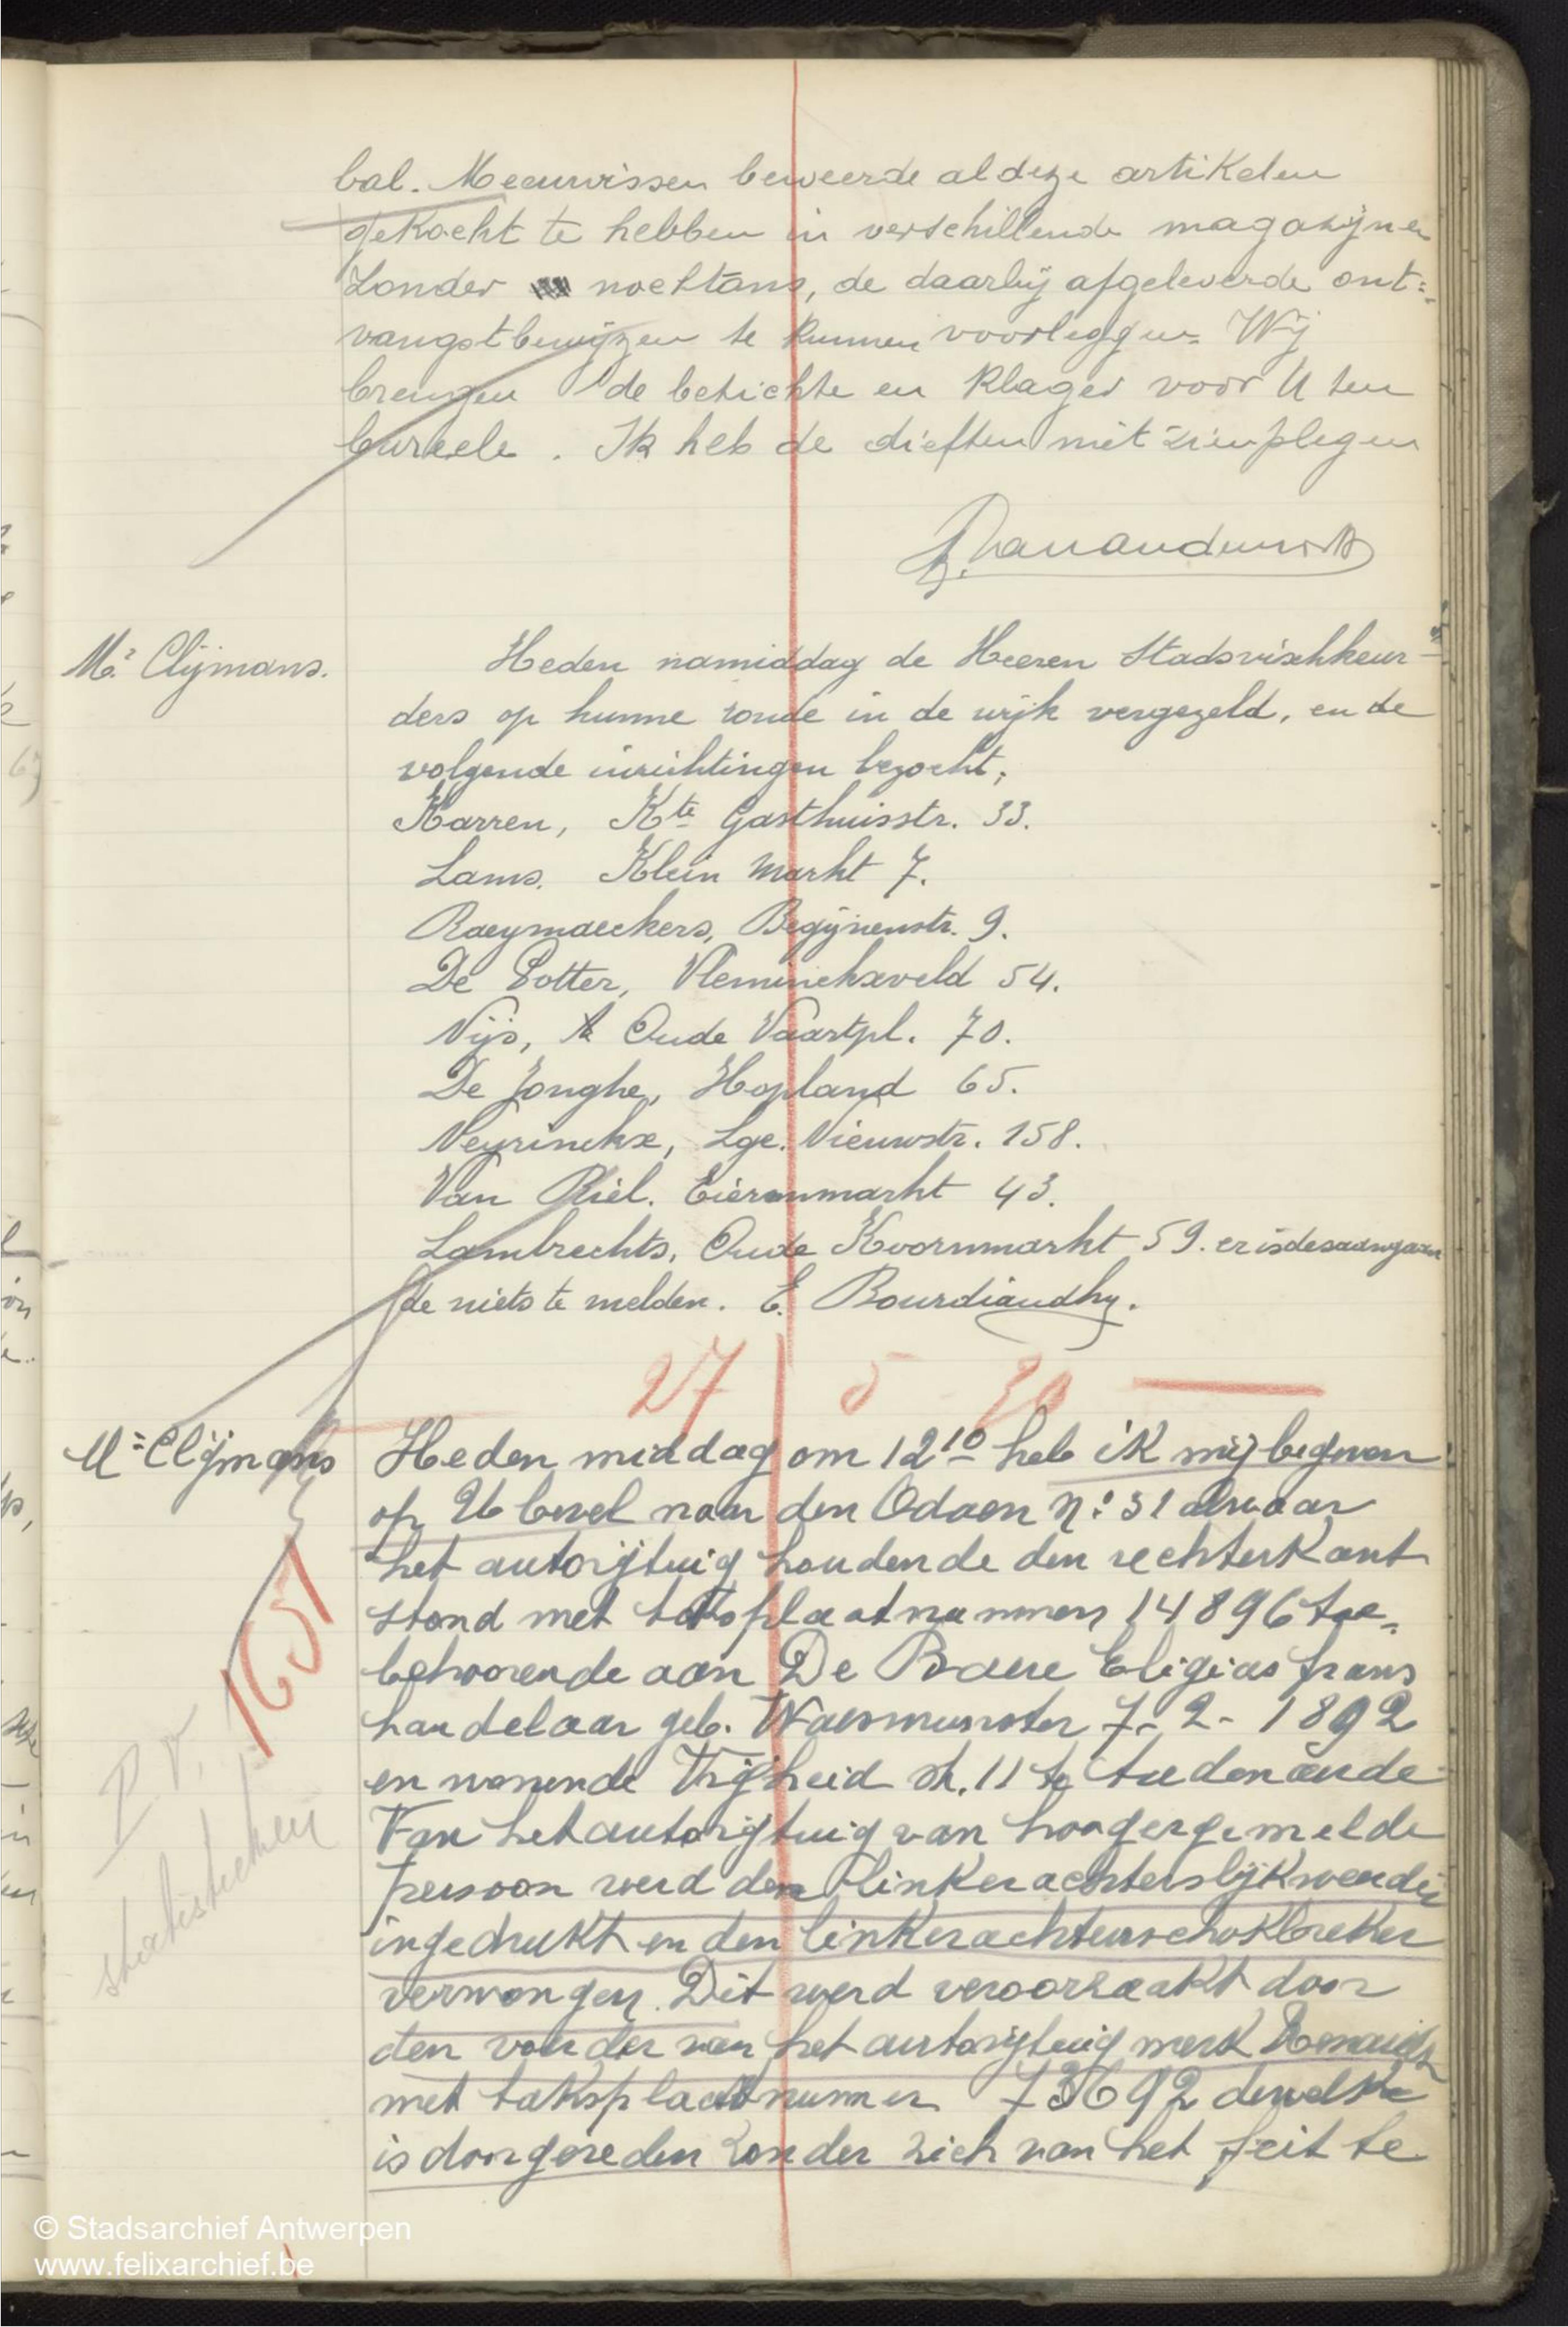 bal. Meeuwissen beweerde al deze artikelen
gekocht te hebben in verschillende magazijnen
zonder nochtans, de daarbij afgeleverde ont=
vangstbewijzen te kunnen voorleggen. Wij
brengen de betichte en klager voor U ten
bureele. Ik heb de dieften niet zien plegen
Mr Clijmans.
Heden namiddag de Heeren Stadsvischkeur-
ders op hunne ronde in de wijk vergezeld, en de
volgende inrichtingen bezocht;
Karren, Kte Gasthuisstr. 33.
Lams. Klein Markt 7.
Raeymaeckers, Begijnenstr. 9.
De Potter, Vleminckxveld 54.
Nijs, Oude Vaartpl. 70.
De Jonghe, Hopland 65.
Neyrinckx, Lge. Nieuwstr. 158.
Van Riel. Eiermarkt 43.
Lambrechts, Oude Koornmarkt 59. er is desaangaan
de niets te melden. E. Bourdiaudhy.
27 5 - 30
Mr Clijmans
Heden middag om 12 10 heb ik mij begeven
op U bevel naar den Odaen n: 31 alwaar
het autorijtuig houdende den rechterkant
stond met taksplaatnummer 14896 toe=
behoorende aan De Baere Eligius frans
handelaar geb. Waesmunster 7-2-1892
en wonende Vrijheid st. 11 te
Van het autorijtuig van hoogergemelde
persoon werd den linkerachterslijkweerder
ingedrukt en den linkerachterschokbreker
verwongen. Dit werd veroorzaakt door
den voerder van het autorijtuig merk Renault
met taksplaatnummer 73692 dewelke
is doorgereden zonder zich van het feit te
1651
P.V.
© Stadsarchief Antwerpen
www.felixarchief.be